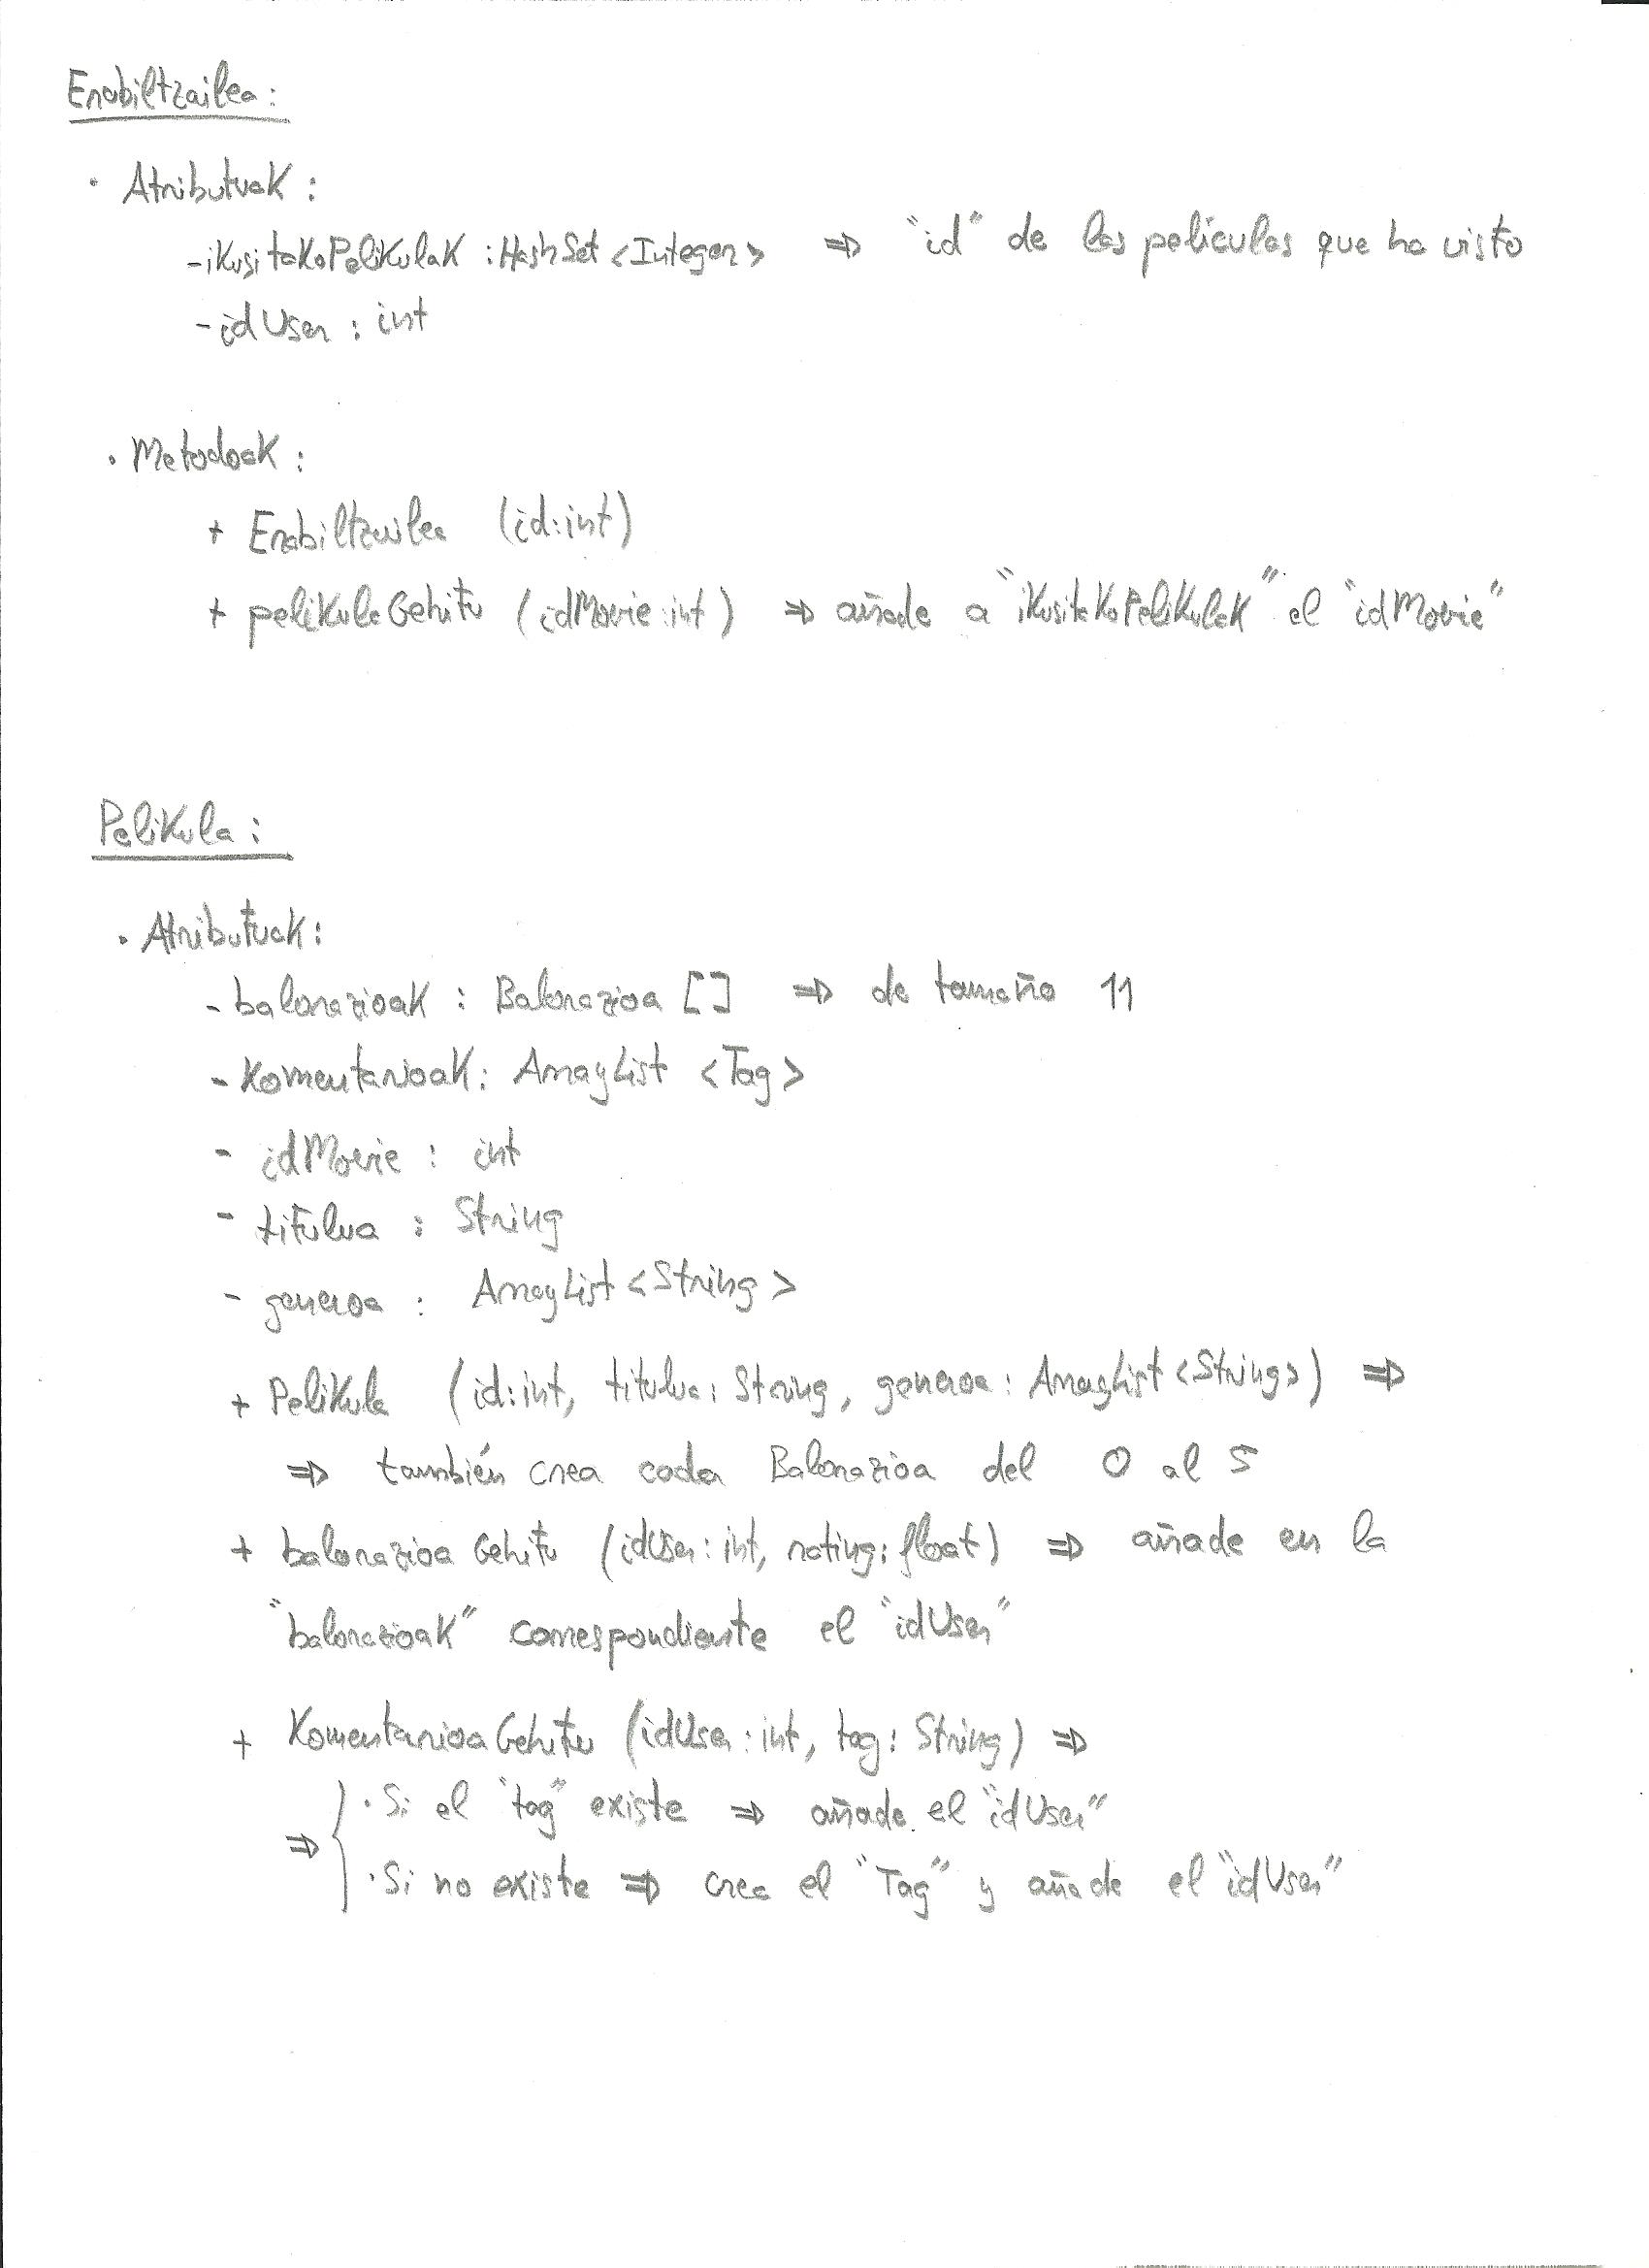 Erabiltzailea:
· Atributuak:
- ikusitakoPelikulak : HashSet <Integer> ⇒ "id" de las películas que ha visto
- idUser : int
· Metodoak:
+ Erabiltzailea (id:int)
+ pelikulaGehitu (idMovie:int) ⇒ añade a "ikusitakoPelikulak" el "idMovie"
Pelikula:
· Atributuak:
- balorazioak : Balorazioa [] ⇒ de tamaño 11
- Komentarioak: ArrayList <Tag>
- idMovie : int
- titulua : String
- generoa : ArrayList <String>
+ Pelikula (id:int, titulua: String, generoa: ArrayList <String>) ⇒
⇒ también crea cada Balorazioa del 0 al 5
+ balorazioaGehitu (idUser: int, rating: float) ⇒ añade en la
"balorazioak" correspondiente el "idUser"
+ KomentarioaGehitu (idUser: int, tag: String) ⇒
· Si el "tag" existe ⇒ añade el "idUser"
⇒ {
· Si no existe ⇒ crea el "Tag" y añade el "idUser"